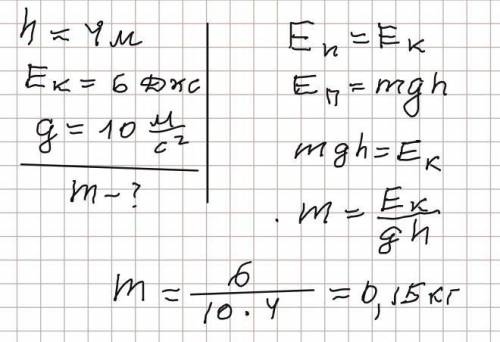 h = 4 м
Eк = 6 Джс
g = 10 м/с²
m - ?
Eп = Eк
Eп = mgh
mgh = Eк
m = Eк/gh
m = 6/10·4 = 0,15 кг